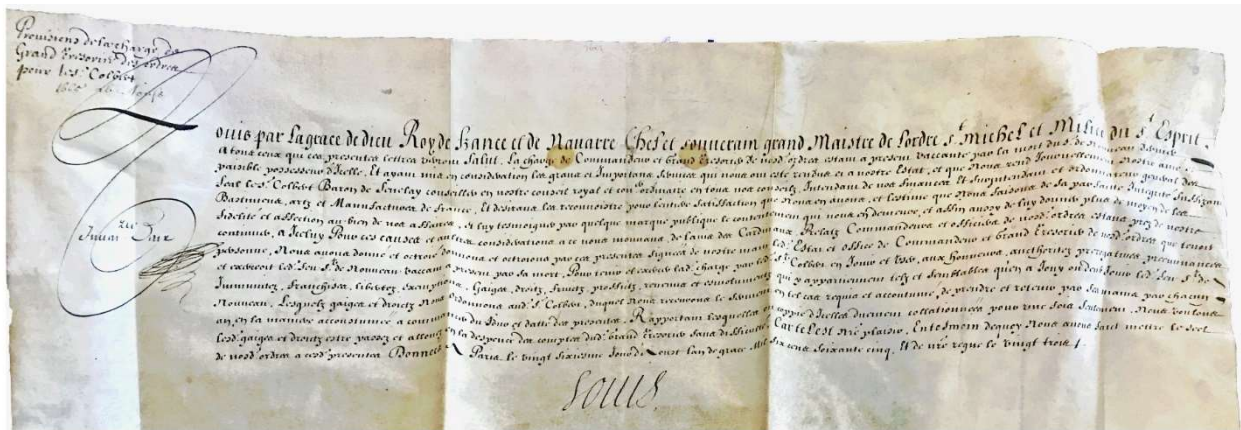 Provisions de la charge de
Grand Tresorier des ordres
pour le sr. Colbert
Louis par La grace de dieu Roy de france et de Navarre Chef et souverain grand Maistre de Lordre st. michel et Milice du st. Esprit.
A tous ceux qui ces presentes lettres verront Salut. La charge de Commandeur et Grand Tresorier de nosd. ordres estant a present vaccante par la mort du sr. de Nouveau dernier
paisible possesseur d'Icelle. Et ayant mis en consideration les grans et Importans services qui nous ont este rendus et a nostre Estat, et que Nous rend Journellement Nostre amé
feal le sr. Colbert Baron de Seignelay conseiller en nostre conseil royal et ordinaire en tous nos conseils, Intendant de nos finances Et Surintendant et ordonnateur general des
Bastimens, arts et Manufactures de france, Et desirans luy reconnoistre pour l'entiere satisfaction que Nous en avons, et l'estime que Nous faisons de sa
fidelité et affection au bien de nos affaires, et luy tesmoigner par quelque marque publique le contentement qui nous en demeure, et affin aussy de luy donner plus de moyen de les
continuer, a Iceluy Pour ces causes et autres considerations a ce nous mouvans, de l'avis des Cardinaux, Prelats Commandeurs et officiers de nosd. ordres estans prez de nostre
personne, Nous avons donné et octroyé donnons et octroyons par ces presentes signées de nostre main led. Estat et office de Commandeur et Grand Tresorier de nosd. ordres que tenoit
et exerceoit led. feu sr. de Nouveau vaccant a present par sa mort, Pour tenir et exercer lad. charge par led. sr. Colbert, en Jouir et user, aux honneurs, authoritez prerogatives preeminances
Immunitez, franchises, libertez, exemptions, Gaiges, droits, fruits, proffits, revenus et esmolumens qui y appartiennent tels et semblables qu'en a Jouy ou deu Jouir led. feu sr. de
Nouveau, Lesquels gaiges et droicts Nous ordonnons aud. sr. Colbert, duquel Nous recevrons le serment en tel cas requis et accoutumé, de prendre et retenir par ses mains par chacun
an, en la maniere accoustumée a commancer du Jour et datte des presentes. Rapportant lesquelles ou coppie d'Icelles duement collationnées pour une fois seulement. Nous voulons
lesd. gaiges et droits estre passez et allouez en la despence des comptes dud. grand Tresorier sans difficulté. Car tel est nre plaisir. En tesmoin dequoy Nous avons fait mettre le scel
de nosd. ordres a cesd. presentes Donnees a Paris le vingt sixieme Jour d'aoust l'an de grace Mil six cens soixante cinq, Et de nre regne le vingt trois.
Louis